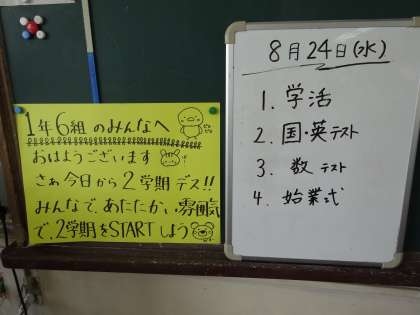 1年6組のみんなへ
おはようございます
さぁ今日から2学期デス!!
みんなで、あたたかい雰囲気
で、2学期をSTARTしよう
8月24日(水)
1. 学活
2. 国・英テスト
3. 数テスト
4. 始業式